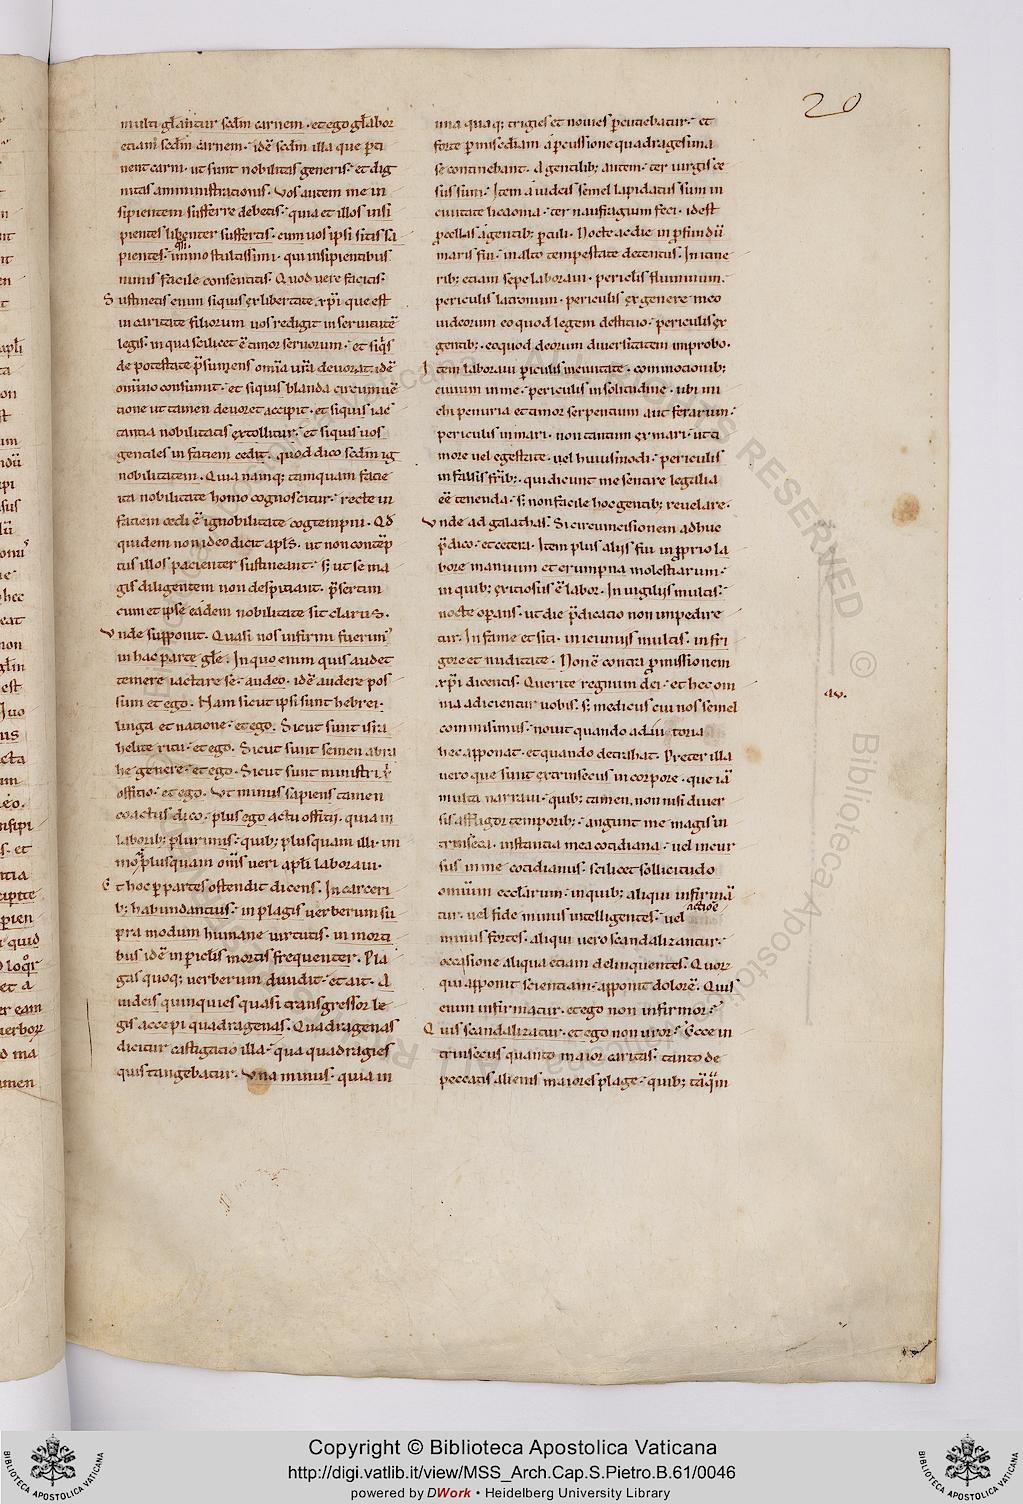 20
multi gła̅ntur scd̅m carnem · et ego gła̅bor
etiam scd̅m carnem · ide̅ scd̅m illa que p̱ti
nent carni · ut sunt nobilitas generis · et dig
nitas amministrationis · Vos autem me in
sipientem sufferre debetis · quia et illos insi
pientes libenter suffertis · cum uos ipsi sitis sa
pientes · immo stultissimi · qui insipientibus
nimis facile consentitis · Quod uere facitis ·
Sustinetis enim si quis ex libertate xp̅i que est
in caritate filiorum uos redigit in seruitute̅
legis · in qua scilicet e̅ timor seruorum · et siq̇s
de potestate p̅sumens om̅ia ur̅a deuorat · ide̅
omi̅no consumit · et si quis blanda circumue̅
tione ut tamen deuoret accipit · et si quis iac
tantia nobilitatis extollitur · et si quis uos
gentiles in faciem cedit · quod dico scd̅m ig
nobilitatem · Quia namq; tamquam facie
ita nobilitate homo cognoscitur · recte in
faciem cedi e̅ ignobilitate contempni · Qd̅
quidem non ideo dicit apl̅s · ut non conte̅p
tus illos pacienter sustineant · s; ut se ma
gis diligentem non despiciant · p̅sertim
cum et ipse eadem nobilitate sit clarus ·
Vnde supponit · Quasi nos infirmi fuerim᾽
in hac parte gl̅e · In quo enim quis audet
temere iactare se · audeo · ide̅ audere pos
sum et ego · Nam sicut ipsi sunt hebrei ·
lingua et natione · et ego · Sicut sunt isra
helite ritu · et ego · Sicut sunt semen abra
he genere · et ego · Sicut sunt ministri x̅
offitio · et ego · Vt minus sapiens tamen
coactus dico · plus ego actu offitij · quia in
laborib; plurimis · quib; plusquam illi · im
mo plusquam om̅s ueri apl̅i laboraui ·
Et hoc p̱ partes ostendit dicens · In carceri
b; habundantius · in plagis uerberum su
pra modum humane uirtutis · in morti
bus ide̅ in p̱iclis mortis frequenter · Pla
gas quoq; uerberum diuidit · et ait · A
iudeis quinquies quasi transgressor le
gis accepi quadragenas · Quadragenas
dicitur castigatio illa · qua quadragies
quis tangebatur · una minus · quia in
una quaq; trigies et nouies p̱cutiebatur · et
forte p̱ misediam a p̱cussione quadragesima
se continebant · A gentilib; autem · ter uirgis ce
sus sum · Item a iudeis semel lapidatus sum in
ciuitate licaonia · ter naufragium feci · id est
p̱cellas agentib; p̱culi · Nocte ac die in p̱fundu̅
maris fui · in alto tempestate detentus · In itine
rib; etiam sepe laboraui · periclis fluminum ·
periculis latronum · periculis ex genere meo
iudeorum eo quod legem destituo · periculis ex
gentib; · eo quod deorum diuersitatem improbo ·
Item laboraui p̱iculis in ciuitate · commotionib;
ciuium in me · periculis in solitudine · ubi mi
chi penuria et timor serpentum aut ferarum ·
periculis in mari · non tantum ex mari · ut ti
more uel egestate · uel huiusmodi · periculis
in falsis fr̅ib; · qui dicunt me sentire legalia
e̅e tenenda · s; non facile hoc gentib; reuelare ·
Vnde ad galathas · Si circumcisionem adhuc
p̅dico · et cetera · Item plus alijs fui in p̱prio la
bore manuum et erumpna molestiarum ·
in quib; exitiosus e̅ labor · In uigilijs multis ·
nocte op̱ans · ut die p̅dicatio non impedire
tur · In fame et siti · in ieiunijs multis · in fri
gore et nuditate · Non e̅ contra p̱missionem
xp̅i dicentis · Querite regnum dei · et hec om
nia adicientur uobis · s; medicus cui nos semel
commisimus · nouit quando adiutoria
hec apponat · et quando detrahat · Preter illa
uero que sunt extrinsecus in corpore · que ia̅
multa narraui · quib; tamen non nisi diuer
sis affligor temporib; · angunt me magis in
trinseca · instantia mea cotidiana · uel incur
sus in me cotidianus · scilicet sollicitudo
omiu̅m eccl̅arum · in quib; aliqui infirma̅
tur · uel fide minus intelligentes · uel
actione
minus fortes · aliqui uero scandalizantur ·
occasione aliqua etiam delinquentes · Quor̅
qui apponit scientiam · apponit dolore̅ · Quis
enim infirmatur · et ego non infirmor ·
Quis scandalizatur · et ego non uror · Ecce in
trinsecus quanto maior caritas · tanto de
peccatis alienis maiores plage · quib; ta̅q̅m
Copyright © Biblioteca Apostolica Vaticana
http://digi.vatlib.it/view/MSS_Arch.Cap.S.Pietro.B.61/0046
powered by DWork • Heidelberg University Library